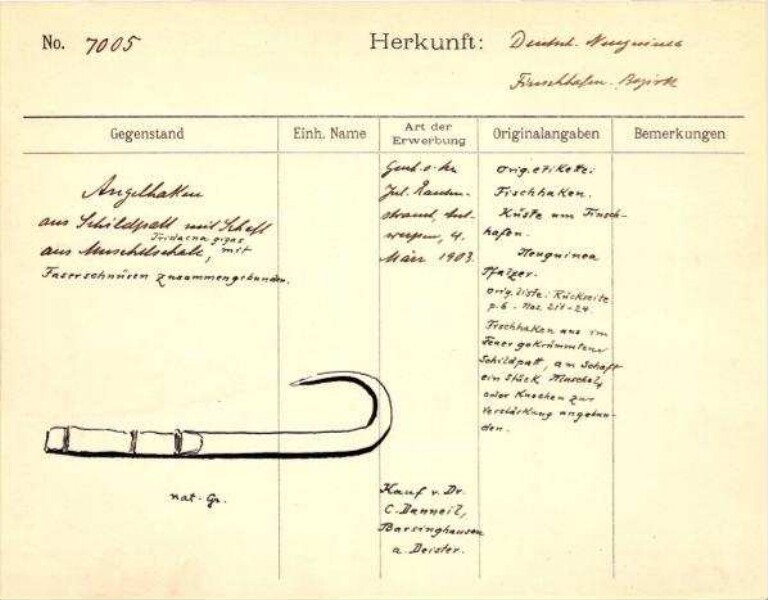 No. 7005
Herkunft: Deutsch. Neuguinea
Finschhafen. Bezirk
Gegenstand
Einh. Name
Art der Erwerbung
Originalangaben
Bemerkungen
Angelhaken
aus Schildpatt mit Schaft
Tridacna gigas
aus Muschelschale, mit
Faserschnüren zusammengebunden.
nat. Gr.
Jul.
werpen, 4.
März 1903.
Kauf v. Dr.
C. Danneil,
Barsinghausen
a. Deister.
Orig. etikette:
Fischhaken.
Küste um Finsch-
hafen.
Neuguinea
orig. liste: Rückseite
p. 6. Noz 211-24.
Fischhaken aus im
Feuer gekrümmtem
Schildpatt, am Schaft
ein Stück Muschel,
oder Knochen zur
Verstärkung angebun-
den.